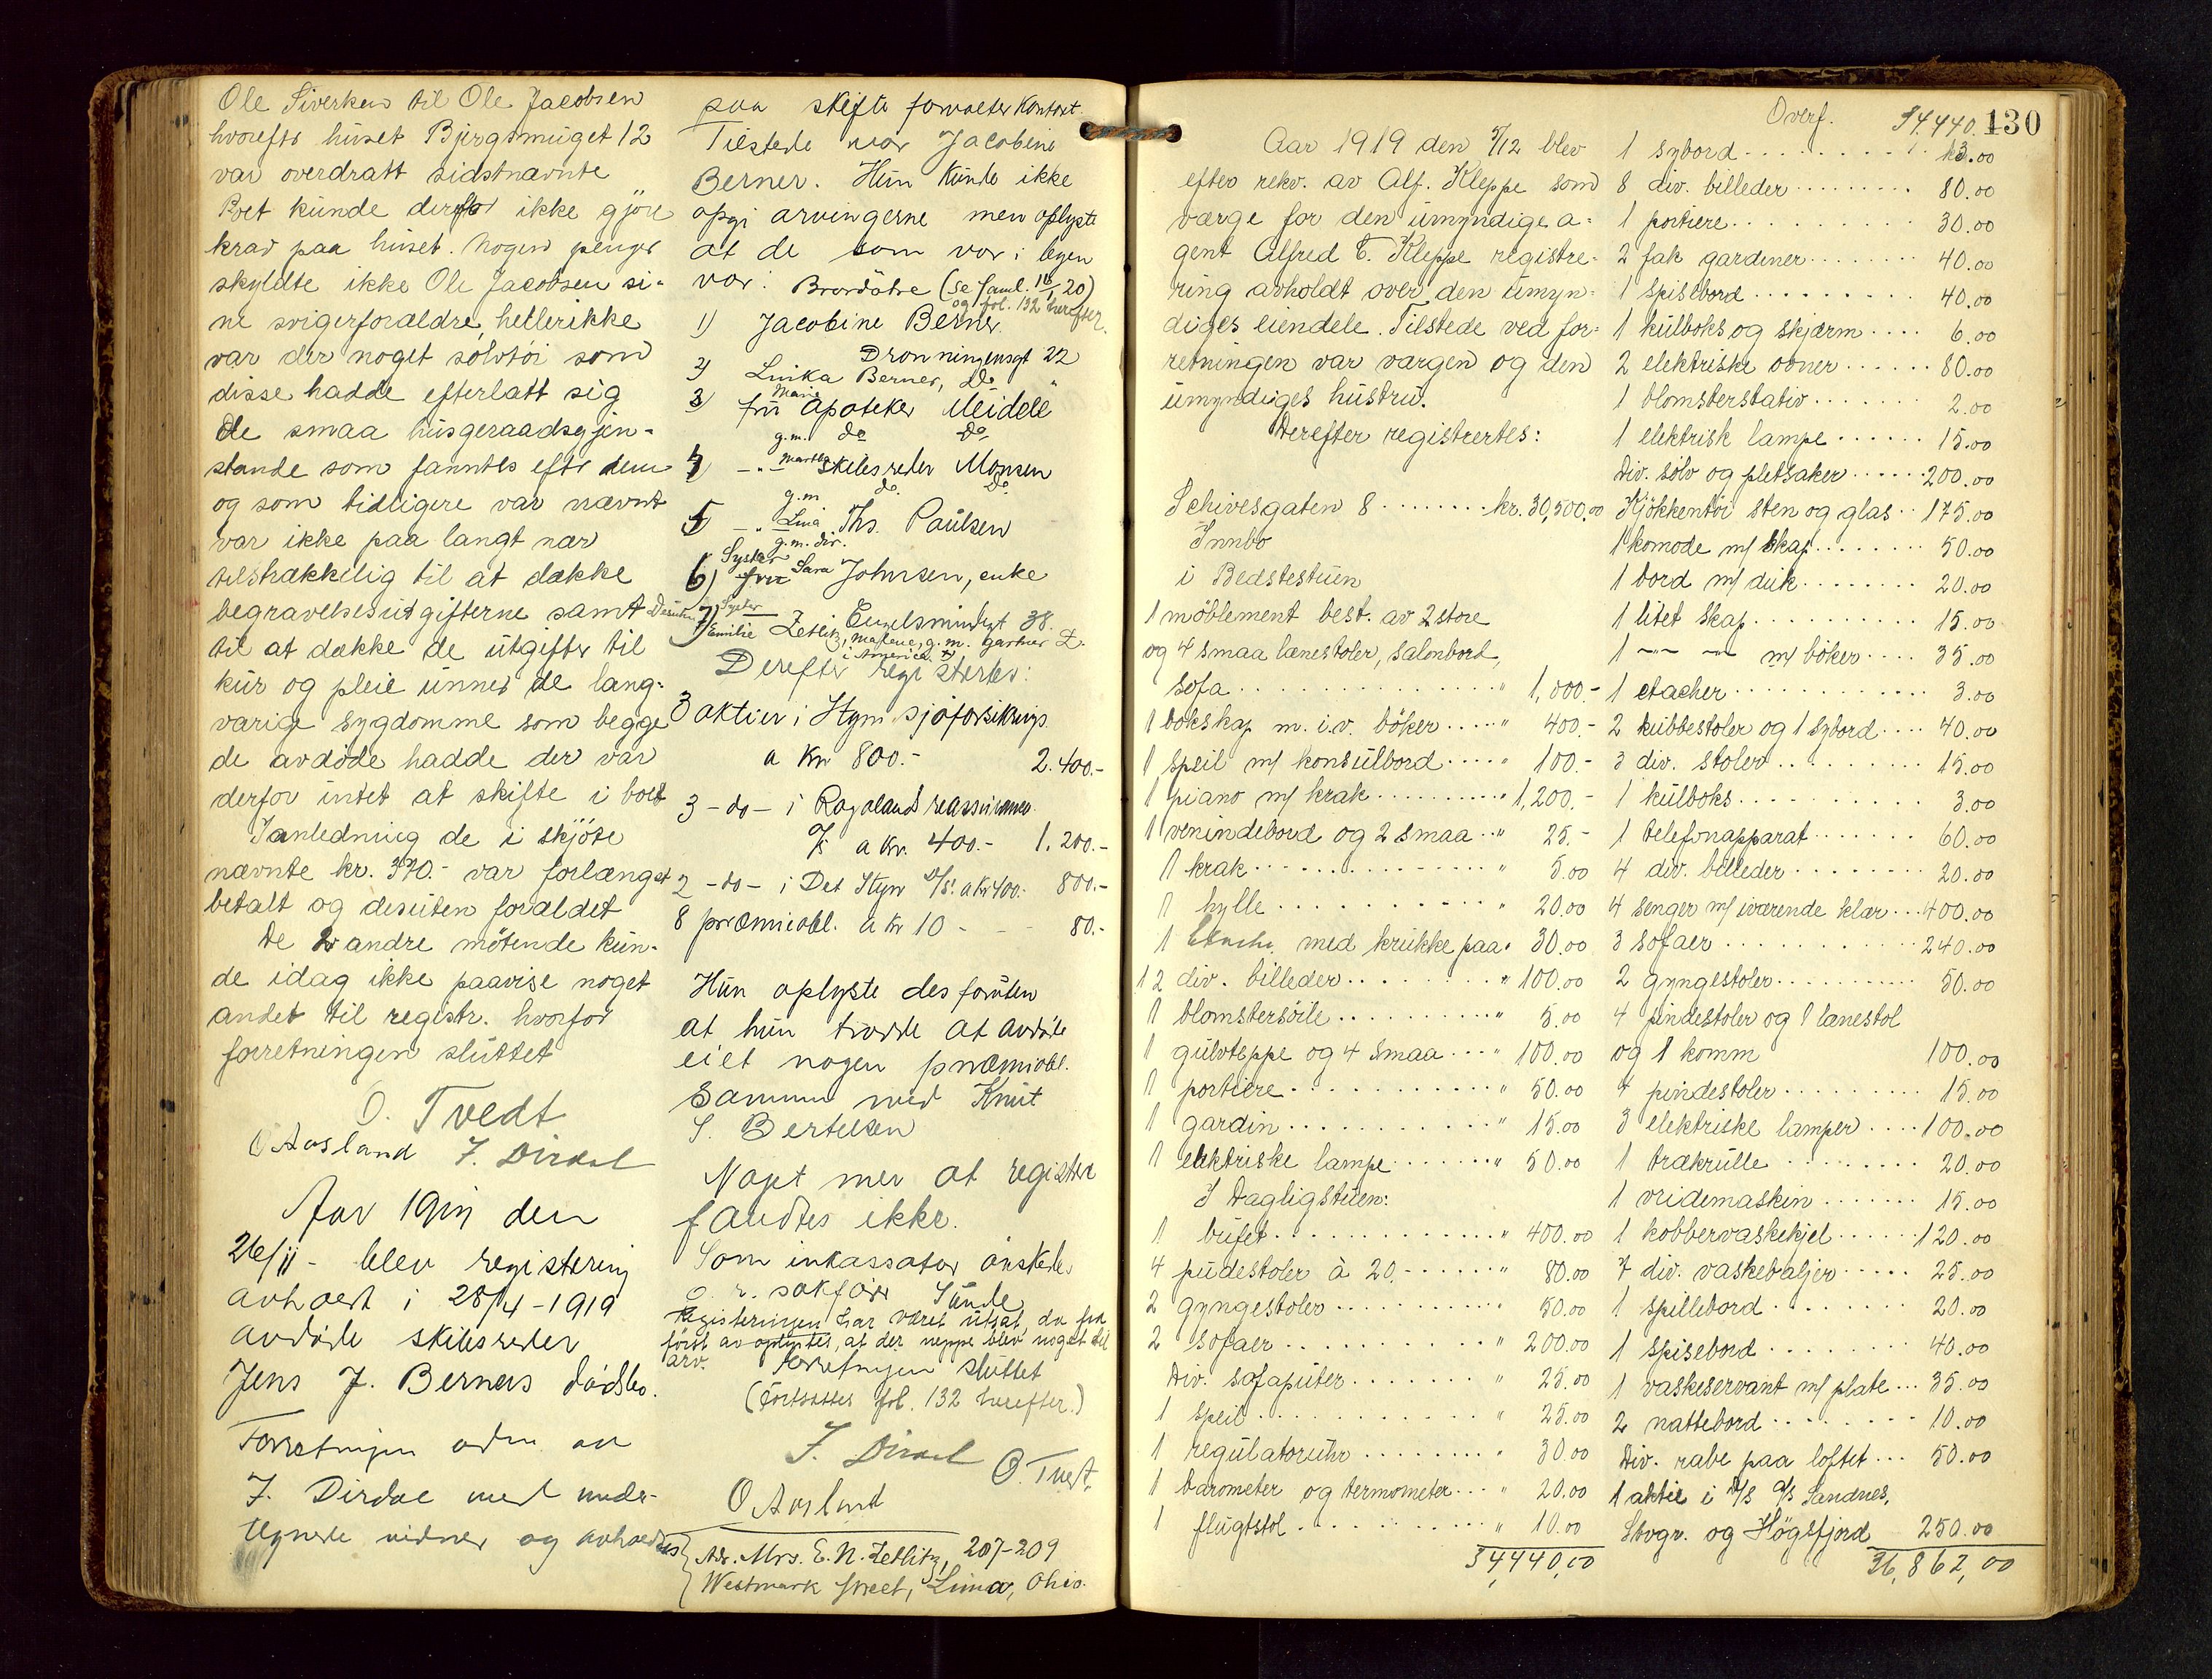 Ole Siverken til Ole Jacobsen
hvorefter huset Bjergsmuget 12
var overdratt sidstnævnte
Boet kunde derfor ikke gjöre
krav paa huset. Nogen penger
skyldte ikke Ole Jacobsen si-
ne svigerforældre, heller ikke
var der noget sölvtöi som
disse hadde efterlatt sig
De smaa husgeraadsgjen-
stande som fanntes efter dem
og som tidligere var nævnt
var ikke paa langt nær
tilstrækkelig til at dække
begravelsesutgifterne samt
til at dække de utgifter til
kur og pleie unner de lang-
varige sygdomme som begge
de avdöde hadde der var
derfor intet at skifte i boet
Ianledning de i skjöte
nævnte kr. 370.- var forlængst
betalt og desuten forældet
De 2 andre mötende kun-
de idag ikke paavise noget
andet til registr. hvorfor
forretningen sluttet
O. Tvedt
O Aasland J. Dirdal
Aar 1919 den
26/11 - blev registering
avholdt i 28/4-1919
avdöde skibsreder
Jens J. Berners dödsbo.
Forretningen adm av
J. Dirdal med under-
tegnede vidner og avholdtes
paa skifteforvalterkontoret.
Tilstede var Jacobine
Berner. Hun kunde ikke
opgi arvingerne men oplyste
at de som var i byen
var: Brordötre (se faml. 16/1 20)
og fol. 132 herefter.
1) Jacobine Berner.
Dronningensgt 22
2) Luika Berner, do "
3) fru Marie Apoteker Meidell
g.m. do do
4) -"- Martha Skibsreder Monsen
g.m do. do
5 -"- Lina Ths. Paulsen
g.m. div.
6) Syster fru Sara Johnsen, enke
Engelsmindegt 38.
7) Syster Emilie Zetlitz, Malene, g.m. gartner Z.
i America.
Derefter registrertes:
3 aktier i Stym sjöforsikrings
a Kr 800.- 2.400.-
3 -do- i Rogalands reassurance
A/S a Kr. 400.- 1.200.-
2 -do- i Det Stym A/S. a Kr 400.- 800.-
8 præmieobl. a Kr 10 - - - 80.-
Hun oplyste desforuten
at hun trodde at avdöde
eiet nogen præmieobl.
sammen med Knut
S. Bertelsen
Noget mer at registere
fandtes ikke.
Som inkassator önskedes
o. r. sakförer Sunde
Registeringen har været utsat, da fra
först av oplystes, at der neppe blev noget til
arv. Forretningen sluttet
(Fortsættes fol. 132 herefter.)
J. Dirdal O. Tvedt.
O Aasland
Adr. Mrs. E. N. Zetlitz, 207-209
Westmark Street, Lima, Ohio.
130
Aar 1919 den 5/12 blev
efter rekv. av Alf. Kleppe som
værge for den umyndige a-
gent Alfred T. Kleppe registre-
ring avholdt over den umyn-
diges eiendele. Tilstede ved for-
retningen var værgen og den
umyndiges hustru.
Derefter registrertes:
Schivesgaten 8 ........ kr. 30,500,00
Innbo
i Bedstestuen
1 möblement best. av 2 store
og 4 smaa lænestoler, salonbord,
sofa .......... " 1,000.-
1 bokskap m. i.v. böker ..... " 400.-
1 speil m/ konsulbord ..... " 100.-
1 piano m/ krak .......... " 1,200.-
1 venindebord og 2 smaa .. " 25.-
1 krak .......... " 5.00
1 hylle .......... " 20.00
1 med krukke paa " 30.00
12 div. billeder .......... " 100.00
1 blomstersöile .......... " 5.00
1 gulvteppe og 4 smaa ... " 100.00
1 portiere .......... " 50.00
1 gardin .......... " 15.00
1 elektriske lampe ....... " 50.00
I Dagligstuen:
1 bufet .......... " 400.00
4 pudestoler à 20.- ....... " 80.00
2 gyngestoler .......... " 50.00
2 sofaer .......... " 200.00
Div. sofaputer ....... " 25.00
1 speil .......... " 25.00
1 regulatoruhr ........ " 30.00
1 barometer og termometer ... " 20.00
1 flugtstol .......... " 10.00
34,440,00
Overf. 34,440.
1 sybord .......... 13.00
8 div. billeder ........ 80.00
1 portiere .......... 30.00
2 fak gardiner ........ 40.00
1 spisebord .......... 40.00
1 kulboks og skjærm .... 6.00
2 elektriske ovner ...... 80.00
1 blomsterstativ ....... 2.00
1 elektrisk lampe ...... 15.00
Div. sölv og pletsaker ...... 200.00
Kjökkentöi sten og glas .. 175.00
1 komode m/ skap ........ 50.00
1 bord m/ duk ........ 20.00
1 litet skap .......... 15.00
1 -"- -"- m/ böker .... 35.00
1 etacher .......... 3.00
2 kubbestoler og 1 sybord .... 40.00
3 div. stoler .......... 15.00
1 kulboks .......... 3.00
1 telefonapparat ....... 60.00
4 div. billeder ........ 20.00
4 senger m/ iværende klær ... 400.00
3 sofaer .......... 240.00
2 gyngestoler .......... 50.00
4 pindestoler og 1 lænestol
og 1 komm 100.00
4 pindestoler ........ 15.00
3 elektriske lamper .... 100.00
1 trækrulle ......... 20.00
1 vridemaskin ....... 15.00
1 kobbervaskekjel ...... 120.00
7 div. vaskebaljer ..... 25.00
1 spillebord ........ 20.00
1 spisebord ........ 40.00
1 vaskeservant m/ plate ... 35.00
2 nattebord ........ 10.00
Div. rabe paa loftet ... 50.00
1 aktie i D/S A/S Sandnes,
Stavgr. og Högsfjord 250.00
36,862,00